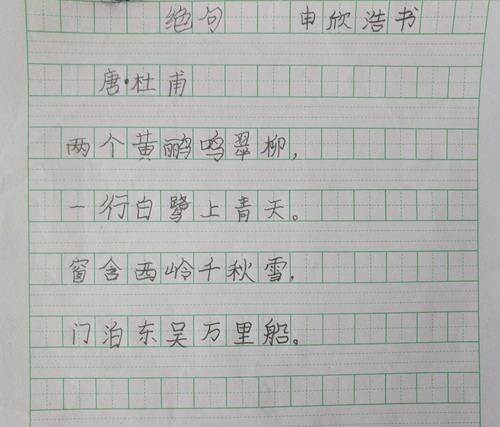 绝句 申欣浩书
唐·杜甫
两个黄鹂鸣翠柳,
一行白鹭上青天。
窗含西岭千秋雪,
门泊东吴万里船。